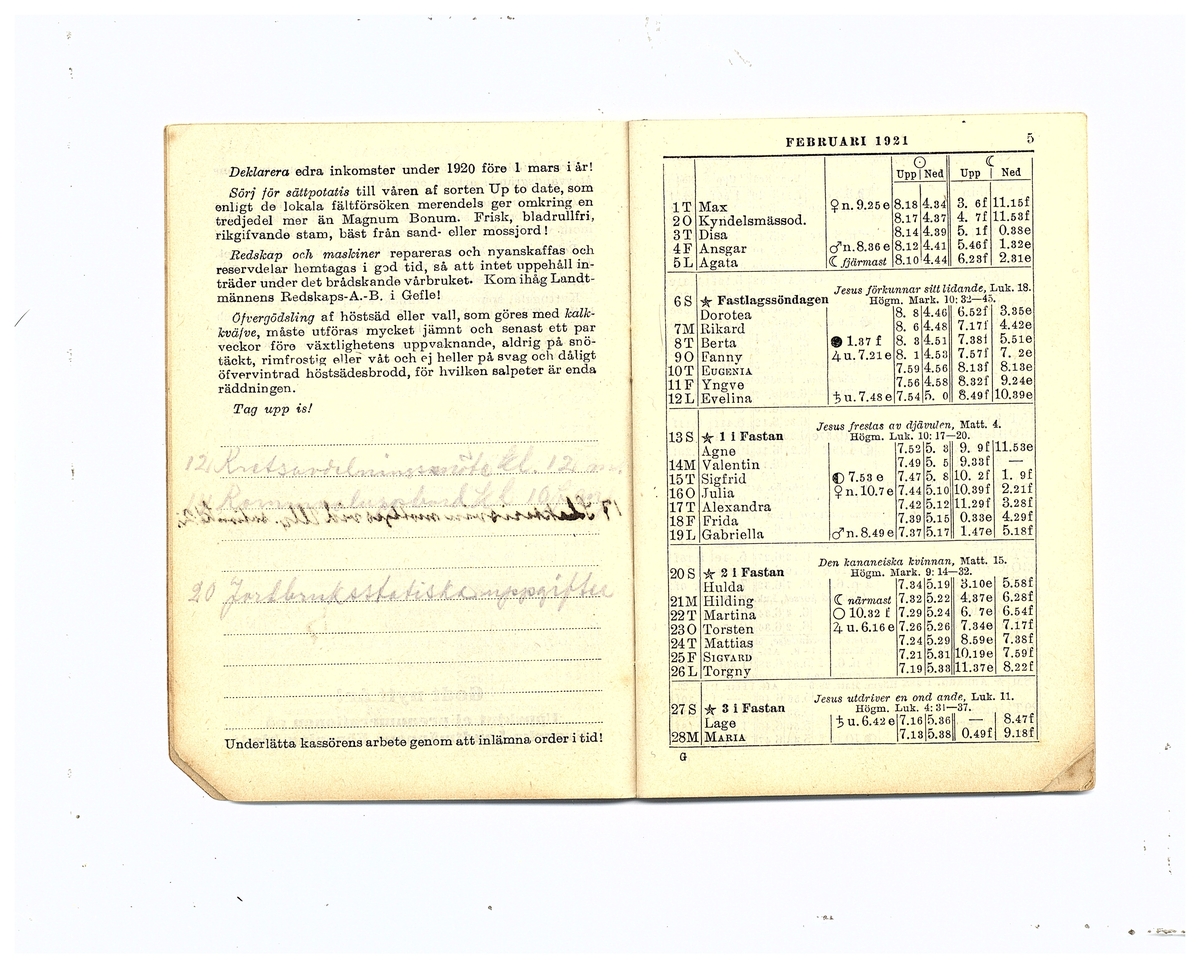 Deklarera edra inkomster under 1920 före 1 mars i år!
Sörj för sättpotatis till våren af sorten Up to date, som
enligt de lokala fältförsöken merendels ger omkring en
tredjedel mer än Magnum Bonum. Frisk, bladrullfri,
rikgifvande stam, bäst från sand- eller mossjord!
Redskap och maskiner repareras och nyanskaffas och
reservdelar hemtagas i god tid, så att intet uppehåll in-
träder under det brådskande vårbruket. Kom ihåg Landt-
männens Redskaps-A.-B. i Gefle!
Öfvergödsling af höstsäd eller vall, som göres med kalk-
kväfve, måste utföras mycket jämnt och senast ett par
veckor före växtlighetens uppvaknande, aldrig på snö-
täckt, rimfrostig eller våt och ej heller på svag och dåligt
öfvervintrad höstsädesbrodd, för hvilken salpeter är enda
räddningen.
Tag upp is!
12 Kretsavdelningsmöte kl. 12 m.
20 Jordbruksstatiska uppgifter
Underlätta kassörens arbete genom att inlämna order i tid!
FEBRUARI 1921 5
☉ ☾
Upp Ned Upp Ned
1 T Max ♀ n. 9.25 e 8.18 4.34 3. 6f 11.15f
2 O Kyndelsmässod. 8.17 4.37 4. 7f 11.53f
3 T Disa 8.14 4.39 5. 1f 0.38e
4 F Ansgar ♂ n. 8.36 e 8.12 4.41 5.46f 1.32e
5 L Agata ☾ fjärmast 8.10 4.44 6.23f 2.31e
Jesus förkunnar sitt lidande, Luk. 18.
6 S ★ Fastlagssöndagen Högm. Mark. 10: 32—45.
Dorotea 8. 8 4.46 6.52f 3.35e
7 M Rikard 8. 6 4.48 7.17f 4.42e
8 T Berta ● 1.37 f 8. 3 4.51 7.38f 5.51e
9 O Fanny ♃ u. 7.21 e 8. 1 4.53 7.57f 7. 2e
10 T EUGENIA 7.59 4.56 8.13f 8.13e
11 F Yngve 7.56 4.58 8.32f 9.24e
12 L Evelina ♄ u. 7.48 e 7.54 5. 0 8.49f 10.39e
Jesus frestas av djävulen, Matt. 4.
13 S ★ 1 i Fastan Högm. Luk. 10: 17—20.
Agne 7.52 5. 3 9. 9f 11.53e
14 M Valentin 7.49 5. 5 9.33f —
15 T Sigfrid ◐ 7.53 e 7.47 5. 8 10. 2f 1. 9f
16 O Julia ♀ n. 10.7 e 7.44 5.10 10.39f 2.21f
17 T Alexandra 7.42 5.12 11.29f 3.28f
18 F Frida 7.39 5.15 0.33e 4.29f
19 L Gabriella ♂ n. 8.49 e 7.37 5.17 1.47e 5.18f
Den kananeiska kvinnan, Matt. 15.
20 S ★ 2 i Fastan Högm. Mark. 9: 14—32.
Hulda 7.34 5.19 3.10e 5.58f
21 M Hilding ☾ närmast 7.32 5.22 4.37e 6.28f
22 T Martina ○ 10.32 f 7.29 5.24 6. 7e 6.54f
23 O Torsten ♃ u. 6.16 e 7.26 5.26 7.34e 7.17f
24 T Mattias 7.24 5.29 8.59e 7.38f
25 F SIGVARD 7.21 5.31 10.19e 7.59f
26 L Torgny 7.19 5.33 11.37e 8.22f
Jesus utdriver en ond ande, Luk. 11.
27 S ★ 3 i Fastan Högm. Luk. 4: 31—37.
Lage ♄ u. 6.42 e 7.16 5.36 — 8.47f
28 M MARIA 7.13 5.38 0.49f 9.18f
G